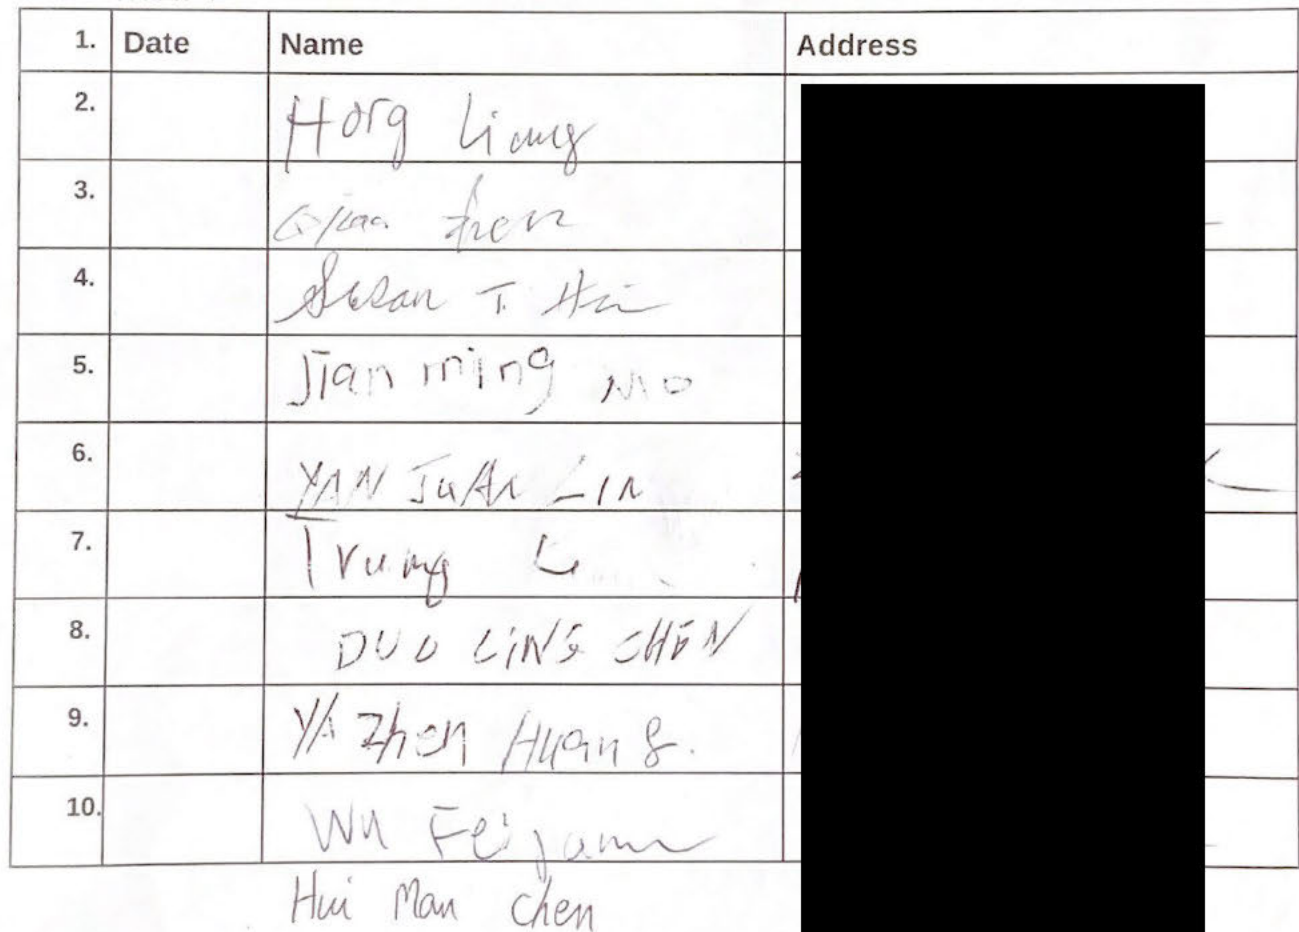 1. Date Name Address
2. Hong Liang
3. Zhen
4. Susan T.
5. Jian ming Mo
6. YAN JuAn Lin
7. Trung
8. DUO LiNG CHEN
9. YA Zhen Huang.
10. Wu Fei
Hui Man Chen